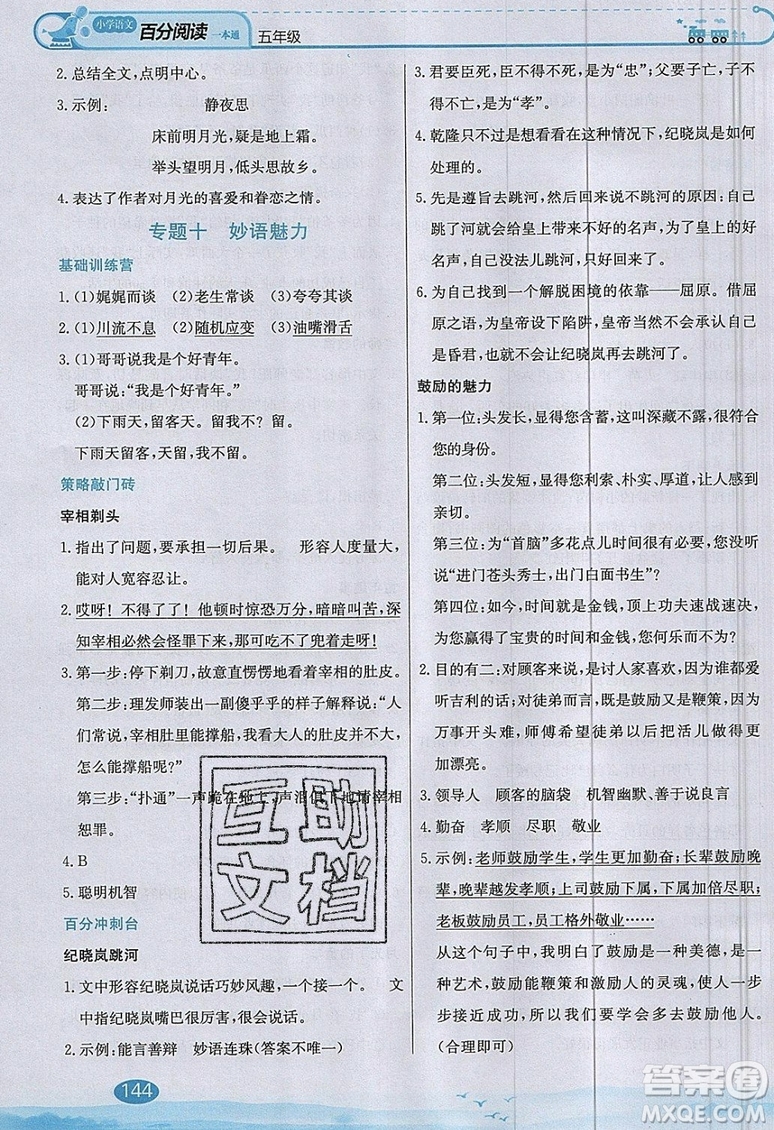 小学语文 百分阅读 一本通 五年级
2. 总结全文，点明中心。
3. 示例： 静夜思
床前明月光，疑是地上霜。
举头望明月，低头思故乡。
4. 表达了作者对月光的喜爱和眷恋之情。
专题十 妙语魅力
基础训练营
1. (1)娓娓而谈 (2)老生常谈 (3)夸夸其谈
2. (1)川流不息 (2)随机应变 (3)油嘴滑舌
3. (1)哥哥说我是个好青年。
哥哥说：“我是个好青年。”
(2)下雨天，留客天。留我不？留。
下雨天留客，天留，我不留。
策略敲门砖
宰相剃头
1. 指出了问题，要承担一切后果。 形容人度量大，
能对人宽容忍让。
2. 哎呀！不得了了！他顿时惊恐万分，暗暗叫苦，深
知宰相必然会怪罪下来，那可吃不了兜着走啊！
3. 第一步：停下剃刀，故意直愣愣地看着宰相的肚皮。
第二步：理发师装出一副傻乎乎的样子解释说：“人
们常说，宰相肚里能撑船，我看大人的肚皮并不大，
怎么能撑船呢？”
第三步：“扑通”一声跪在地上，声泪俱下地情宰相
恕罪。
4. B
5. 聪明机智
百分冲刺台
纪晓岚跳河
1. 文中形容纪晓岚说话巧妙风趣，一个接一个。 文
中指纪晓岚嘴巴很厉害，很会说话。
2. 示例：能言善辩 妙语连珠(答案不唯一)
144
3. 君要臣死，臣不得不死，为“忠”；父要子亡，子不
得不亡，为“孝”。
4. 乾隆只不过是想看看在这种情况下，纪晓岚是如何
处理的。
5. 先是遵旨去跳河，然后说不跳河的原因：自己
跳了河就会给皇上带来不好的名声，为了皇上的
名声，自己没法儿跳河。
6. 为自己找到一个解脱困境的依靠——屈原。借屈
原之语，为皇帝设下陷阱，皇帝当然不会承认自己
是昏君，也就不会让纪晓岚再去跳河了。
鼓励的魅力
1. 第一位：头发长，显得您含蓄，这叫深藏不露，很符合
您的身份。
第二位：头发短，显得您利索、朴实、厚道，让人感到
亲切。
第三位：为“首脑”多花点儿时间很有必要，您没听
说“进门苍头秀士，出门白面书生”？
第四位：如今，时间就是金钱，顶上功夫速战速决，
为您赢得了宝贵的时间和金钱，何乐而不为？
2. 目的有二：对顾客来说，是讨人家喜欢，因为谁都爱
听吉利的言语；对徒弟而言，既是鼓励又是鞭策，因为
万事开头难，师傅希望徒弟以后把活儿做得更
加漂亮。
3. 领导人 顾客的脑袋 机智幽默、善于说良言
4. 勤奋 孝顺 尽职 敬业
5. 示例：老师鼓励学生，学生更加勤奋；长辈鼓励晚
辈，晚辈越发孝顺；上司鼓励下属，下属加倍尽职；
老板鼓励员工，员工格外敬业……
从这个句子中，我明白了鼓励是一种美德，是
一种进步。鼓励能鞭策和激励人，使人一步
步接近成功，所以我们应该多去鼓励他人。
(合理即可)
互助
文档
答案圈
MXQE.COM